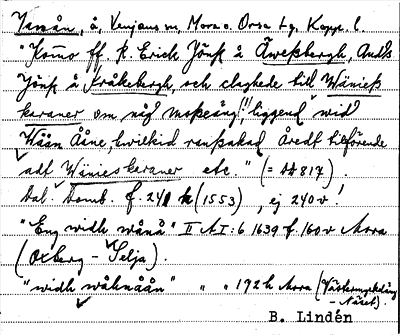 Vanån, å, Venjans sn, Mora o. Orsa tg, Kopp. l.
"Komo ff p. Erich Jönß å Åweßbergh, Ands
Jönß å Kråkebergh, och claghede till Wänieß
karaner om någ moßeäng(!) liggend wid
Wåån Ååne, hwilkid ransakad Åredt tilförende
adt Wänieskaraner etc." (= ÄÄ 817).
Dal. Domb. f. 241 r (1553), ej 240 v!
"Eng widh wånå" II AI: 6 1639 f. 160 v Mora
(Oxberg – Selja).
"widh wåhnåån" " " 192 h Mora (Västermyckäng
– Näset).
B. Lindén